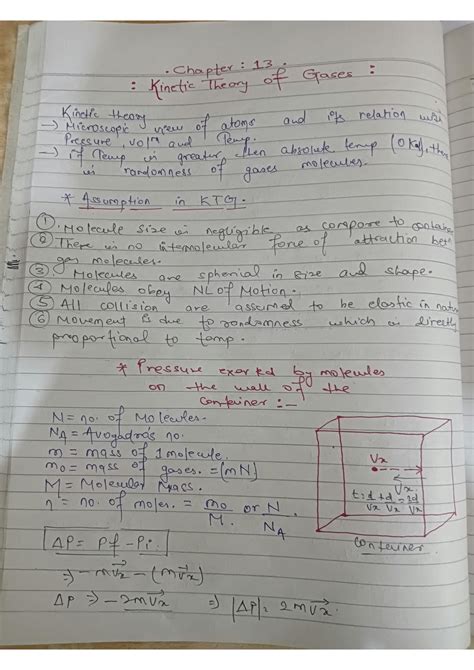 Chapter : 13.
: Kinetic Theory of Gases :
Kinetic theory
→ Microscopic view of atoms and its relation with
Pressure, volm and Temp.
→ if Temp is greater then absolute temp (0 K), there
is randomness of gases molecules.
* Assumption in KTG.
① Molecule size is negligible as compare to container
② There is no intermolecular force of attraction betn
gas molecules.
③ Molecules are spherial in size and shape.
④ Molecules obey NL of Motion.
⑤ All collision are assumed to be elastic in nature
⑥ Movement is due to randomness which is directly
proportional to temp.
* Pressure exerted by molecules
on the wall of the
container :-
N = no. of Molecules.
NA = Avogadros no.
m = mass of 1 molecule.
mo = mass of gases. = (mN)
M = Molecular Mass.
n = no. of moles. = mo/M. or N/NA
Vx
Vx
t = d/Vx + d/Vx = 2d/Vx
container
ΔP = Pf - Pi.
⇒ -mVx - (mVx)
ΔP ⇒ -2mVx ⇒ |ΔP| = 2mVx.